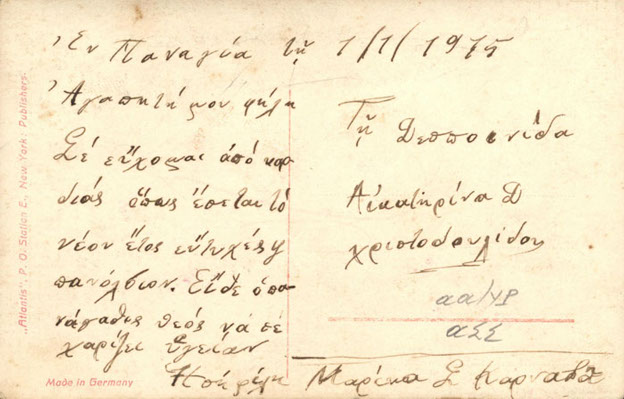 Ἐν Παναγία τῇ 1/1/1915
Ἀγαπητή μου φήλη
Σέ εὔχομαι ἀπό καρ
διάς ὅπως ἔσεται τό
νέον ἔτος εὐτυχές
πανόλβιον. Εἴθε ὁ πα
νάγαθος θεός νά σέ
χαρίζει ὑγείαν
Ἡ σή φίλη Μαρίκα Σ
Τῇ Δεσποινίδα
Αἰκατηρίνα Δ
Χριστοδουλίδου
αα/ΥΡ
αΣΣ
„Atlantis", P. O. Station E., New York: Publishers.
Made in Germany